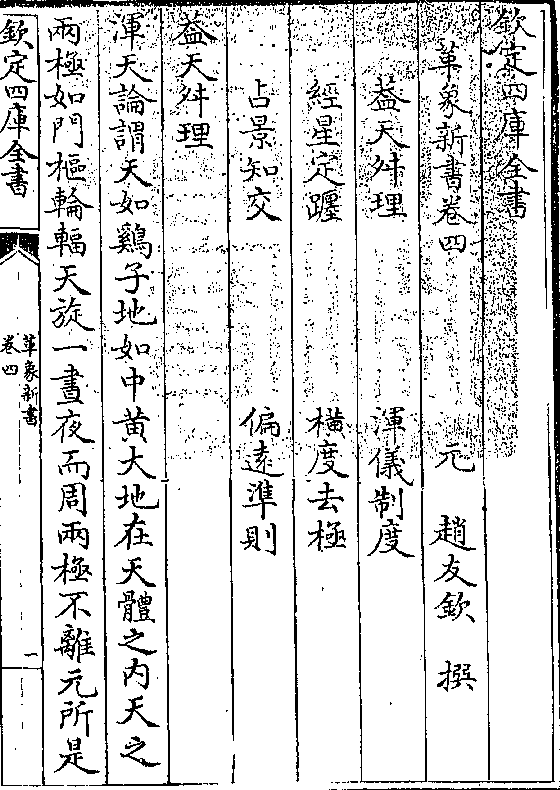 欽定四庫全書
革象新書卷四
元 趙友欽 撰
蓋天舛理 渾儀制度
經星定躔 橫度去極
占景知交 偏遠準則
蓋天舛理
渾天論謂天如鷄子地如中黃大地在天體之內天之
兩極如門樞輪輻天旋一晝夜而周兩極不離元所是
欽定四庫全書
革象新書
卷四
一